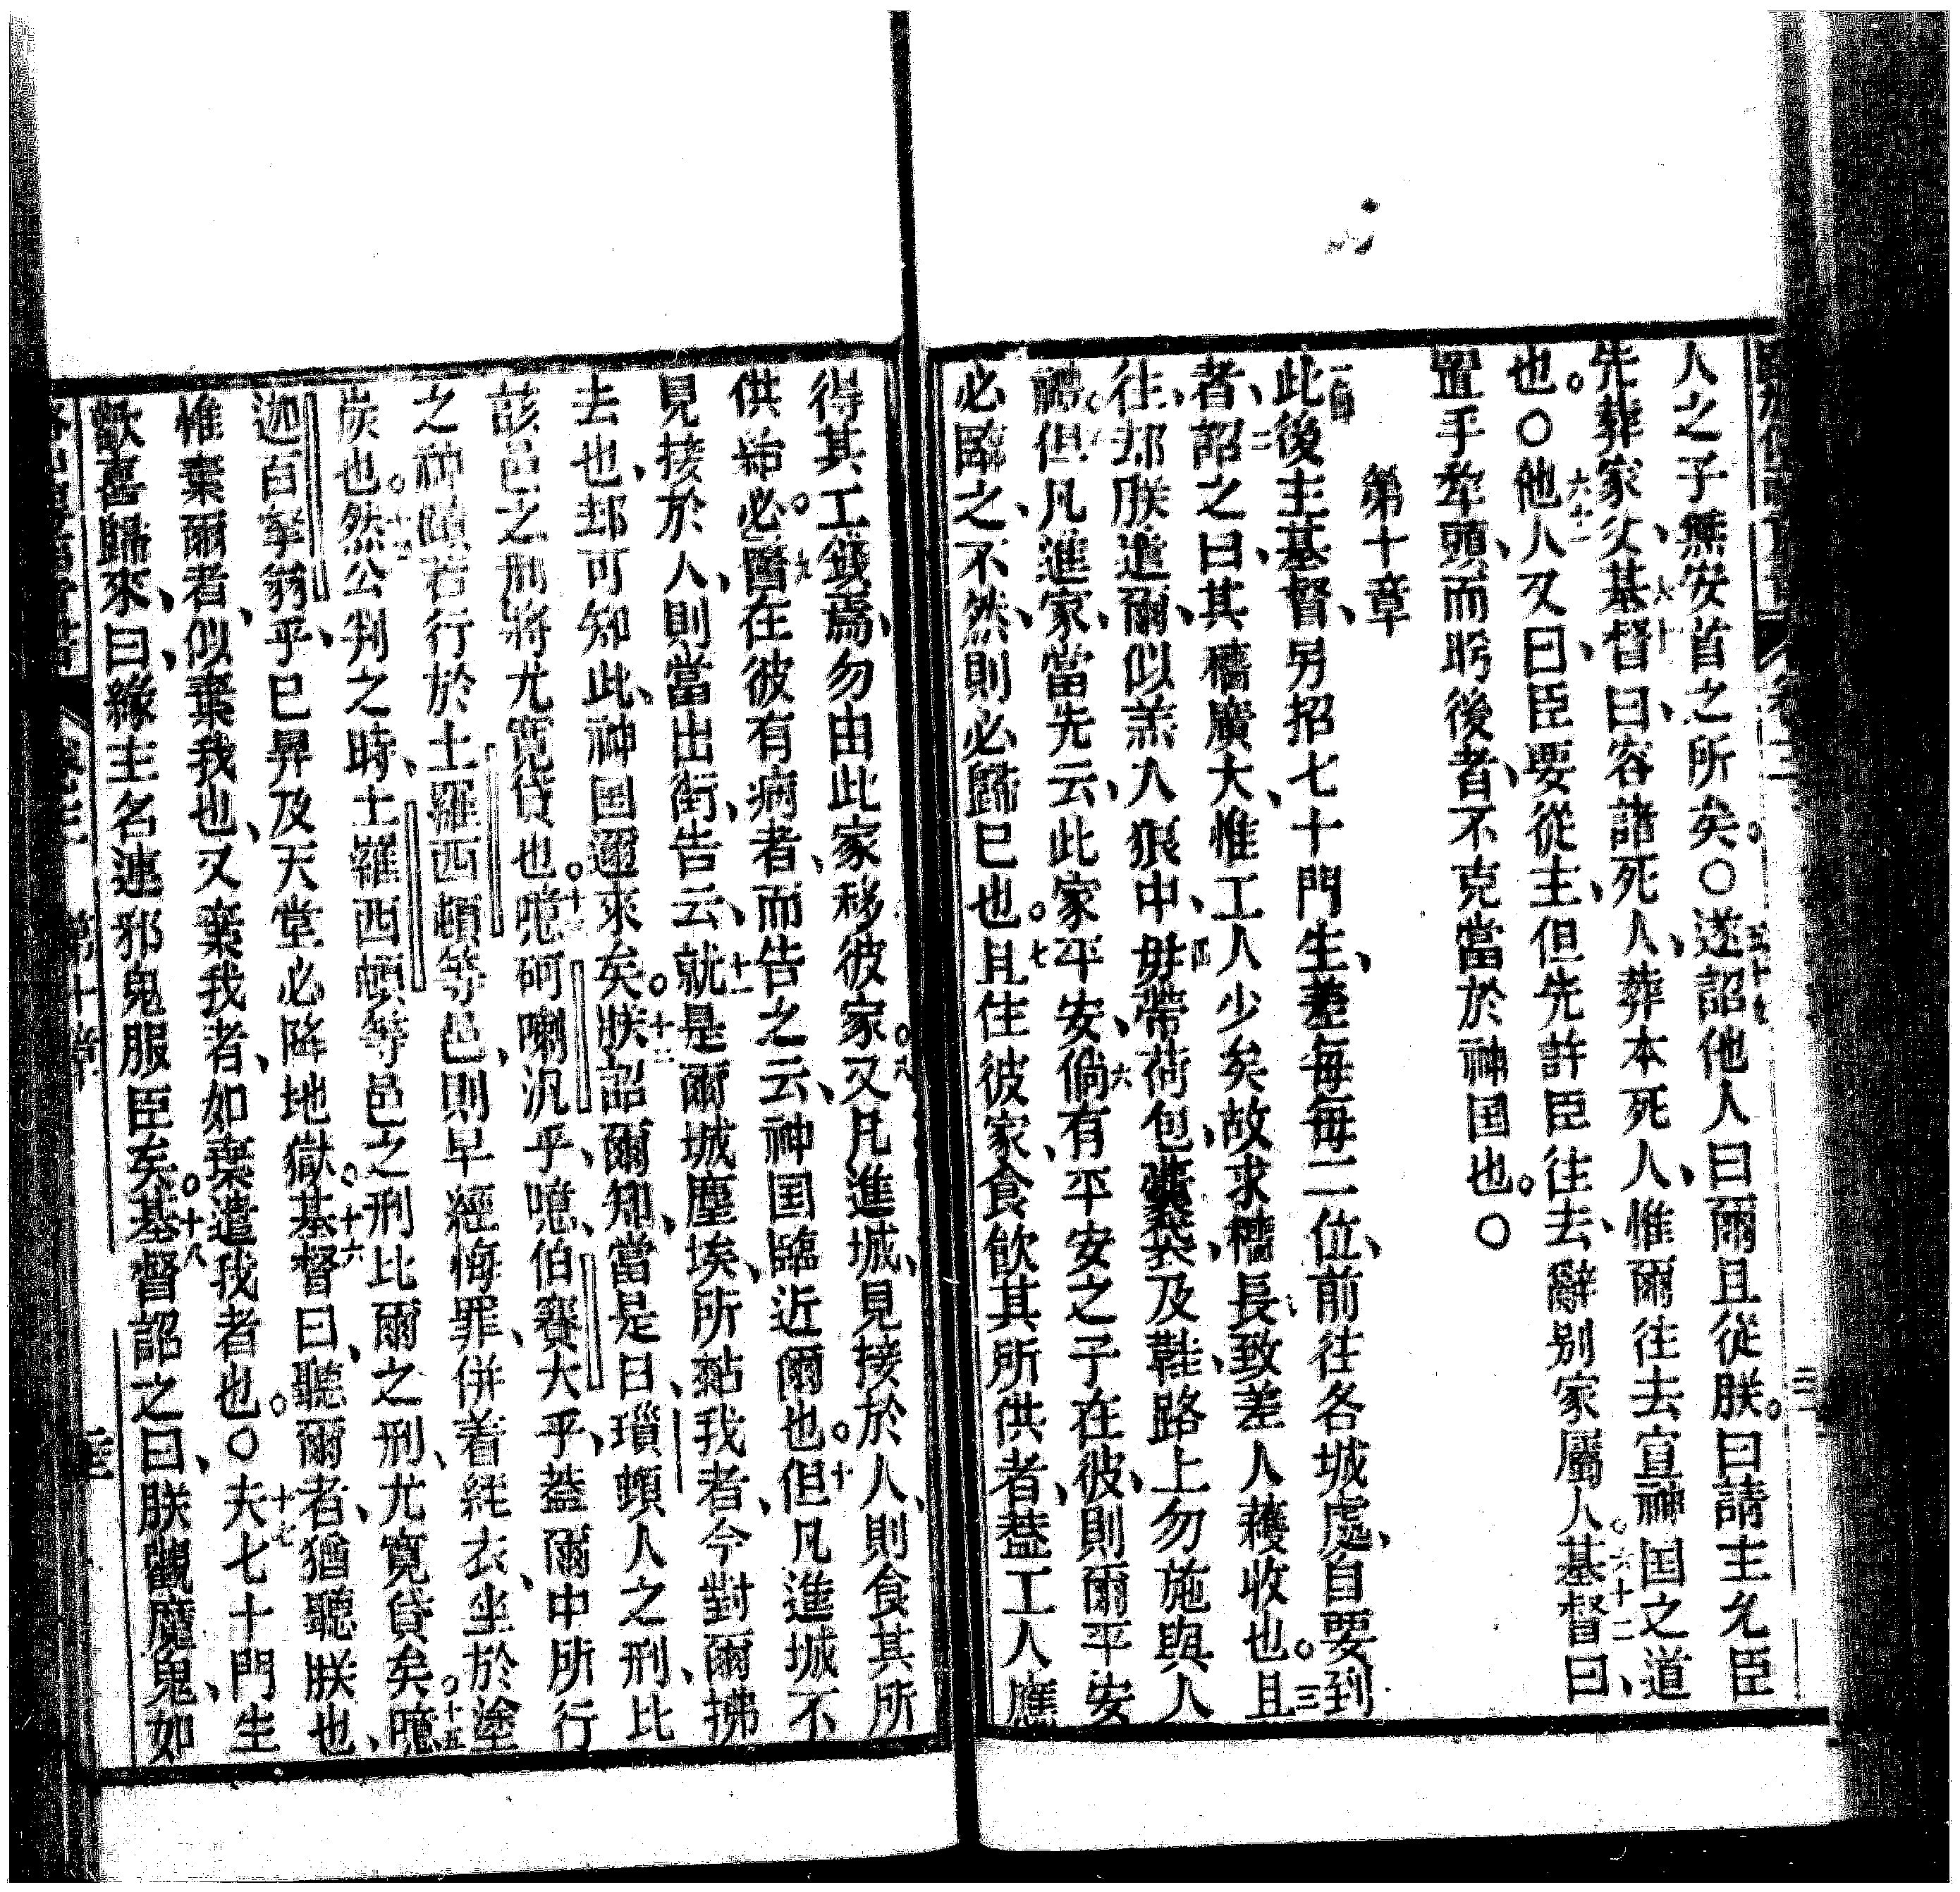 人之子無安首之所矣。〇遂詔他人曰爾且從朕。曰請主允臣
先葬家父、基督曰、容諸死人、葬本死人、惟爾往去宣神囯之道
也。〇他人又曰、臣要從主、但先許臣往去、辭别家屬人。基督曰、
置手犂頭、而盻後者、不克當於神囯也。〇
第十章
此後主基督、另招七十門生、差每每二位、前往各城處、自要到
者、詔之曰、其穡廣大、惟工人少矣故求穡長致差人穫收也。且
往、却朕遣爾、似羔入狼中、毋帶荷包、囊袋、及鞋、路上勿施與人
禮。但凡進家、當先云、此家平安、倘有平安之子在彼、則爾平安
必臨之、不然、則必歸已也。且住彼家、食飲其所供者、葢工人應
得其工錢焉、勿由此家移彼家。又凡進城、見接於人、則食其所
供。必醫在彼有病者、而告之云、神囯臨近爾也。但凡進城不
見接於人、則當出街、告云、就是爾城塵埃、所黏我者、今對爾拂
去也、却可知此、神囯邇來矣。朕詔爾知、當是日、瑣頓人之刑、比
該邑之刑將尤寛貸也。噫㖿喇汎乎、噫、伯賽大乎、葢爾中所行
之神蹟若行於土羅西頓等邑、則早經悔罪、併着絰衣、坐於塗
炭也。然公判之時、土羅西頓等邑之刑比爾之刑、尤寛貸矣。噫、
迦百拏翁乎、已昇及天堂必降地獄。基督曰、聽爾者、猶聽朕也、
惟棄爾者、似棄我也、又棄我者、如棄遣我者也。〇夫七十門生
歡喜歸來、曰、緣主名連邪鬼服臣矣。基督詔之曰、朕觀魔鬼、如
第十章